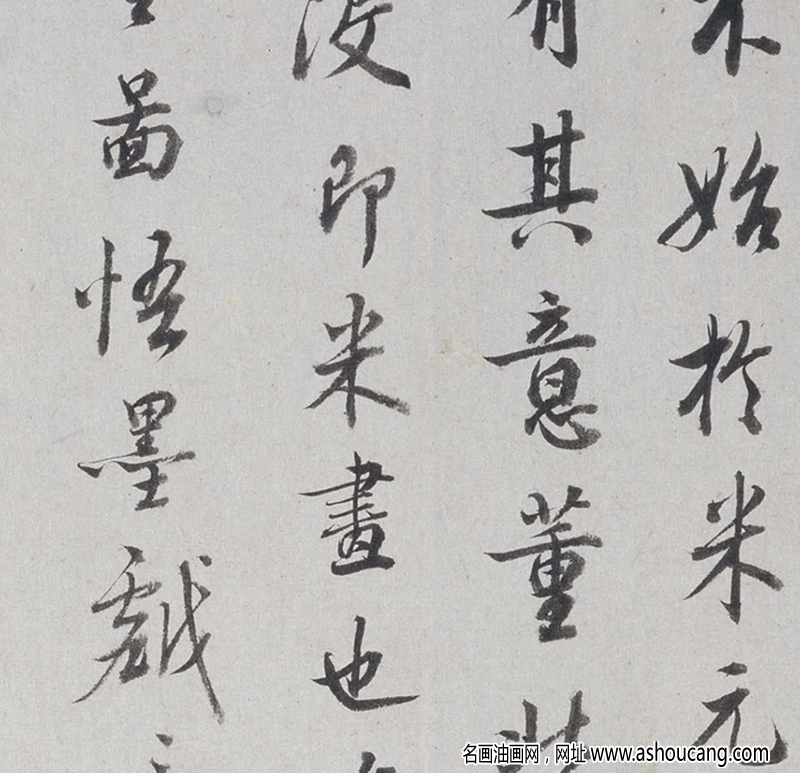 不始於米元
有其意董北
沒即米畫也
圖悟墨戲
名画油画网，网址 www.ashoucang.com